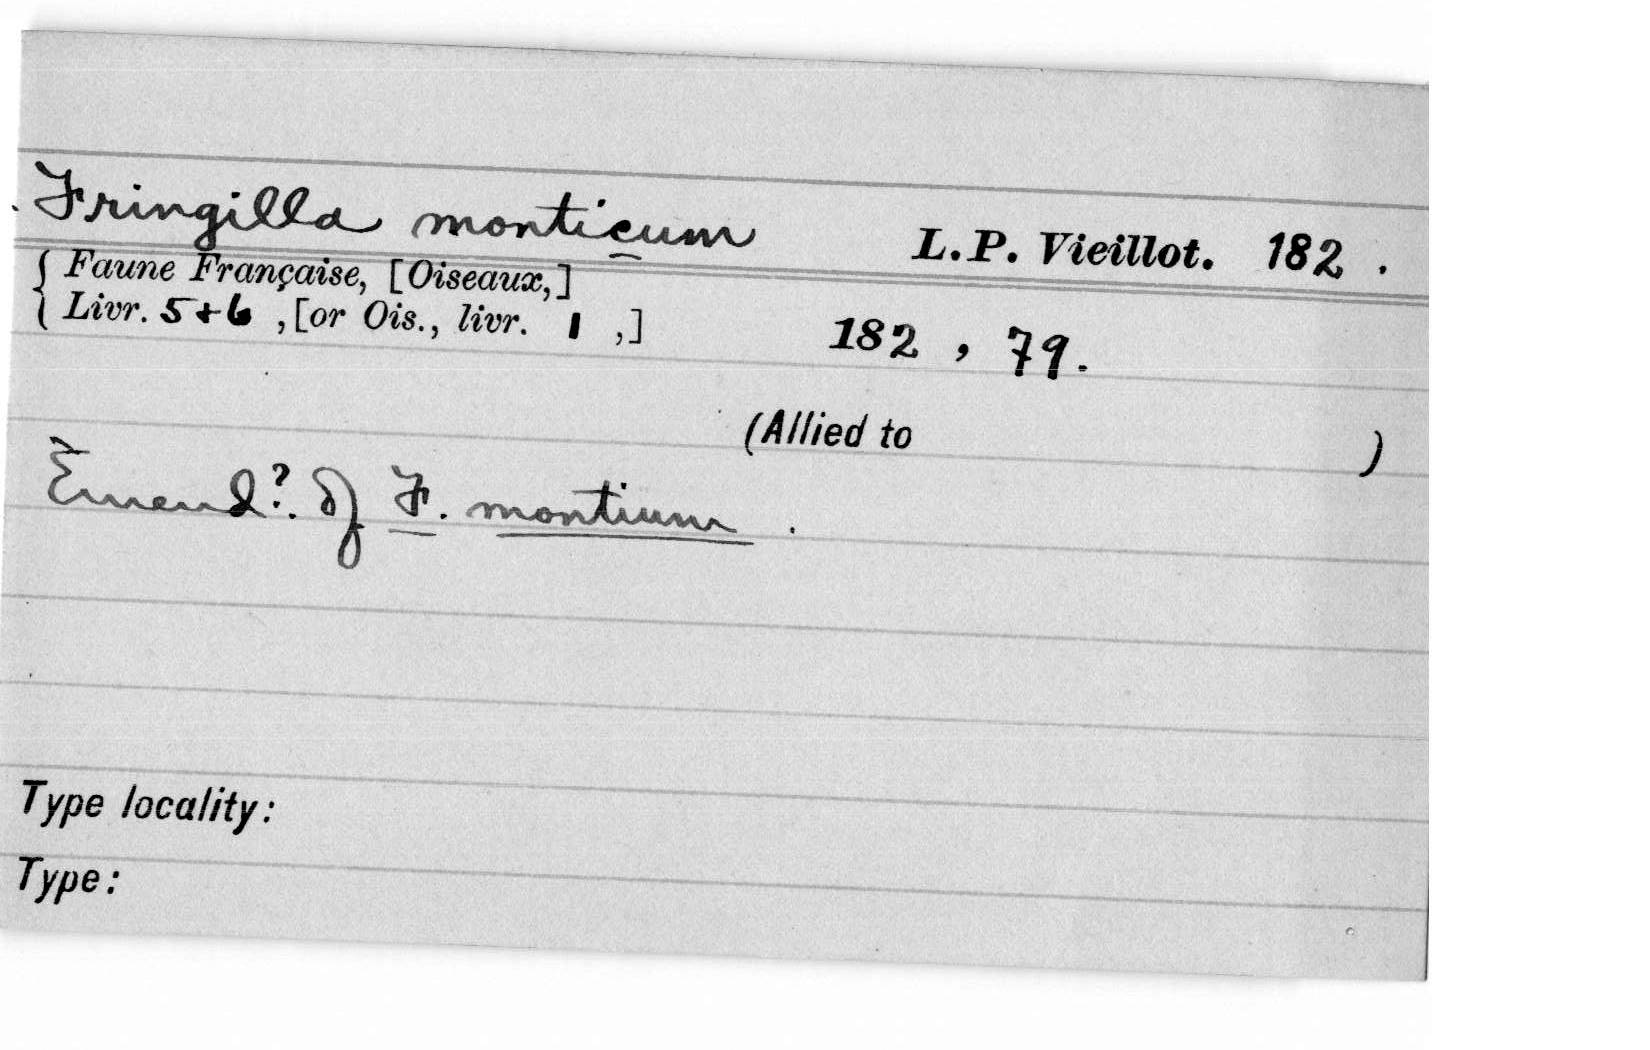 Fringilla monticum L.P. Vieillot. 182 .
Faune Française, [Oiseaux,]
Livr. 5+6 , [or Ois., livr. 1 ,] 182 , 79.
(Allied to )
Emend?. of F. montium .
Type locality:
Type: